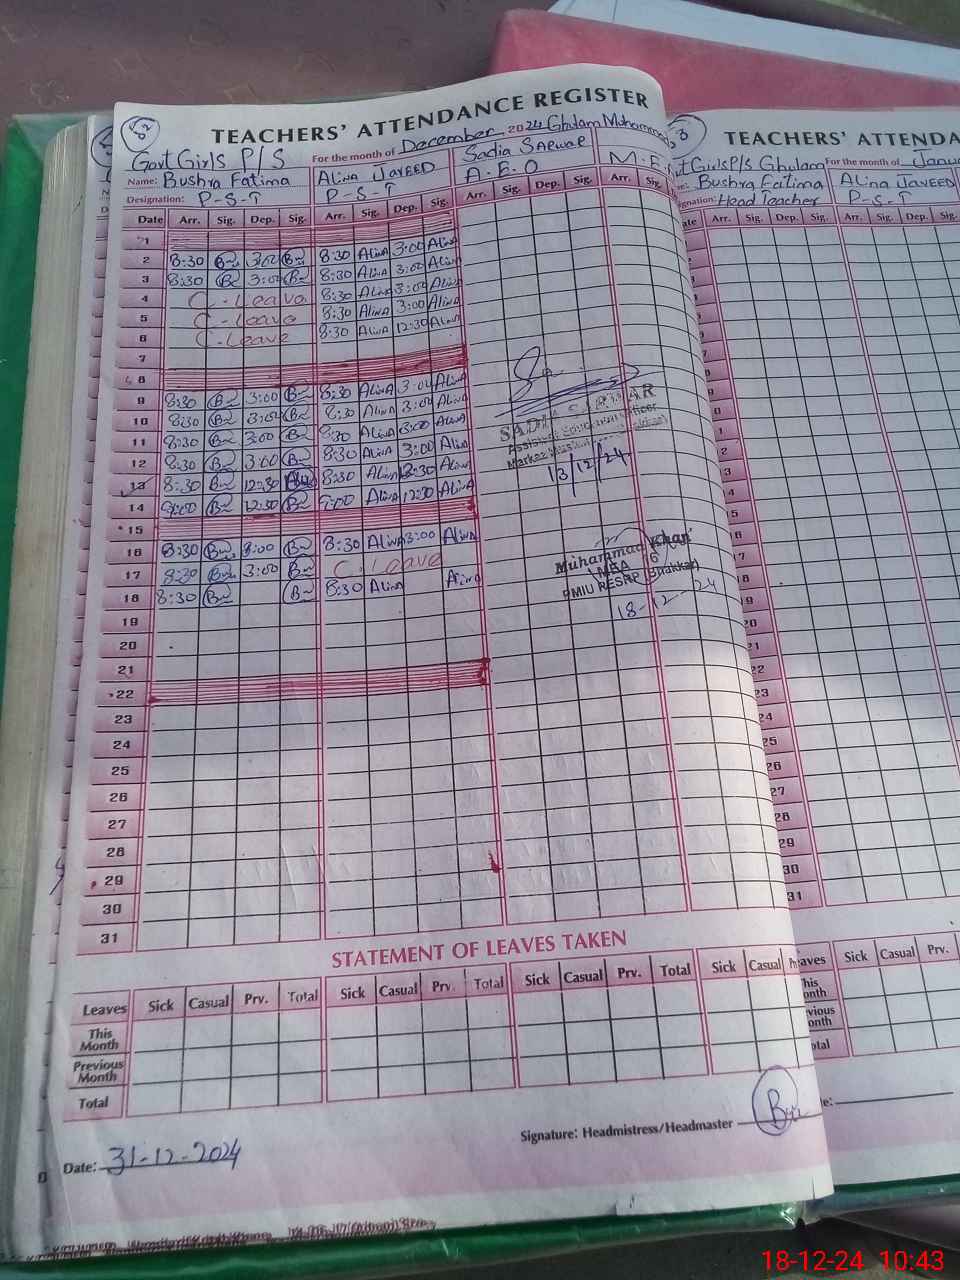 TEACHERS' ATTENDANCE REGISTER
Govt Girls P/S For the month of December 2024 Ghulam Muhammad
Name: Bushra Fatima ALINA JAVEED Sadia SARWAR
Designation: P-S-T P-S-T A.E.O M.E.
Date Arr. Sig. Dep. Sig. Arr. Sig. Dep. Sig. Arr. Sig. Dep. Sig. Arr. Sig.
1
2 8:30 3:00 8:30 Alina 3:00 Alina
3 8:30 3:00 8:30 Alina 3:00 Alina
4 C-Leave 8:30 Alina 3:00 Alina
5 C-Leave 8:30 Alina 3:00 Alina
6 C-Leave 8:30 Alina 12:30 Alina
7
8
9 8:30 3:00 8:30 Alina 3:00 Alina
10 8:30 3:00 8:30 Alina 3:00 Alina
11 8:30 3:00 8:30 Alina 3:00 Alina
12 8:30 3:00 8:30 Alina 3:00 Alina
13 8:30 12:30 8:30 Alina 12:30 Alina
14 9:00 12:30 9:00 Alina 12:30 Alina
15
16 8:30 3:00 8:30 Alina 3:00 Alina
17 8:30 3:00 C. Leave
18 8:30 8:30 Alina Alina
19
20
21
22
23
24
25
26
27
28
29
30
31
SADIA SARWAR
Assistant Education Officer
Markaz
13/12/24
Muhammad Khan
PMIU RESRP (Bhakkar)
18-12-24
STATEMENT OF LEAVES TAKEN
Leaves Sick Casual Prv. Total Sick Casual Prv. Total Sick Casual Prv. Total Sick Casual
This Month
Previous Month
Total
Signature: Headmistress/Headmaster
Date: 31-12-2024
TEACHERS' ATTENDA
Govt Girls P/S Ghulam For the month of Janua
Bushra Fatima ALINA JAVEED
Head Teacher P-S-T
Arr. Sig. Dep. Sig. Arr. Sig. Dep. Sig.
Sick Casual Prv. Total Sick Casual Prv.
18-12-24 10:43